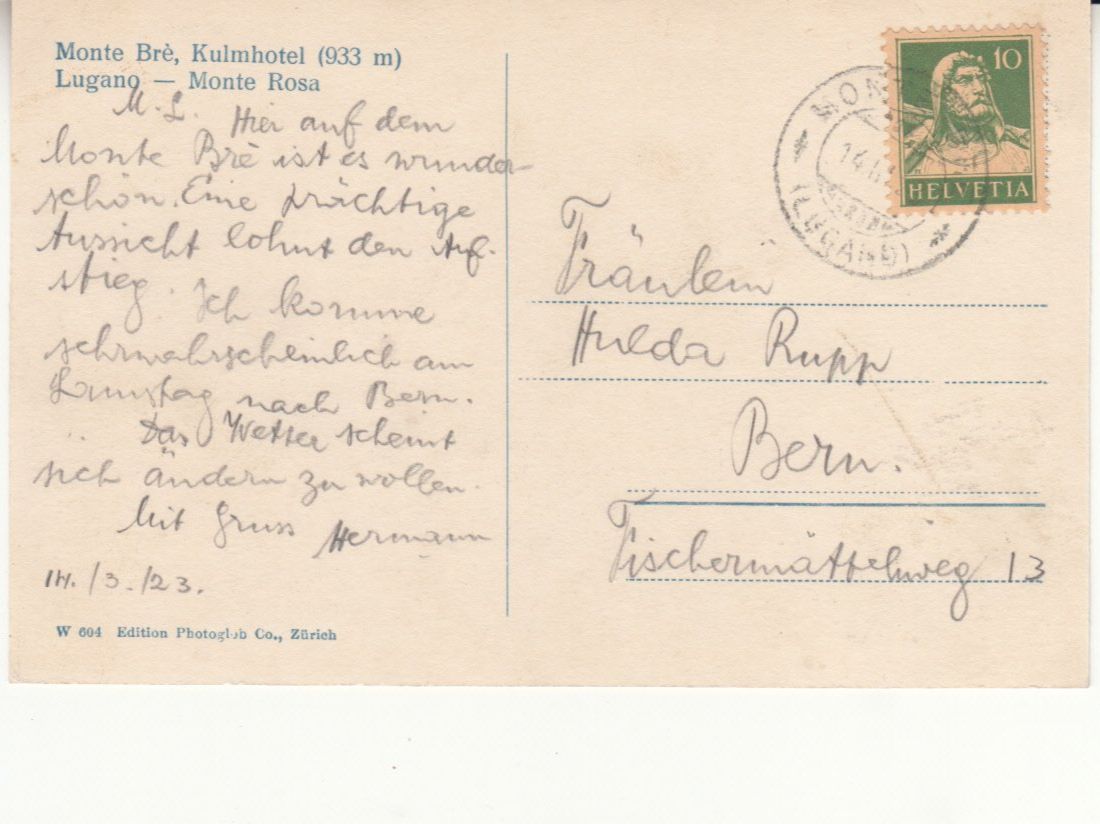 Monte Brè, Kulmhotel (933 m)
Lugano — Monte Rosa
M. L. Hier auf dem
Monte Brè ist es wunder-
schön. Eine prächtige
Aussicht lohnt den Auf-
stieg. Ich komme
sehrwahrscheinlich am
Samstag nach Bern.
Das Wetter scheint
sich ändern zu wollen.
Mit Gruss Hermann
14./3./23.
W 604 Edition Photoglob Co., Zürich
10
HELVETIA
MON
(LUGANO)
Fräulein
Hulda Rupp
Bern.
Fischermätteliweg 13